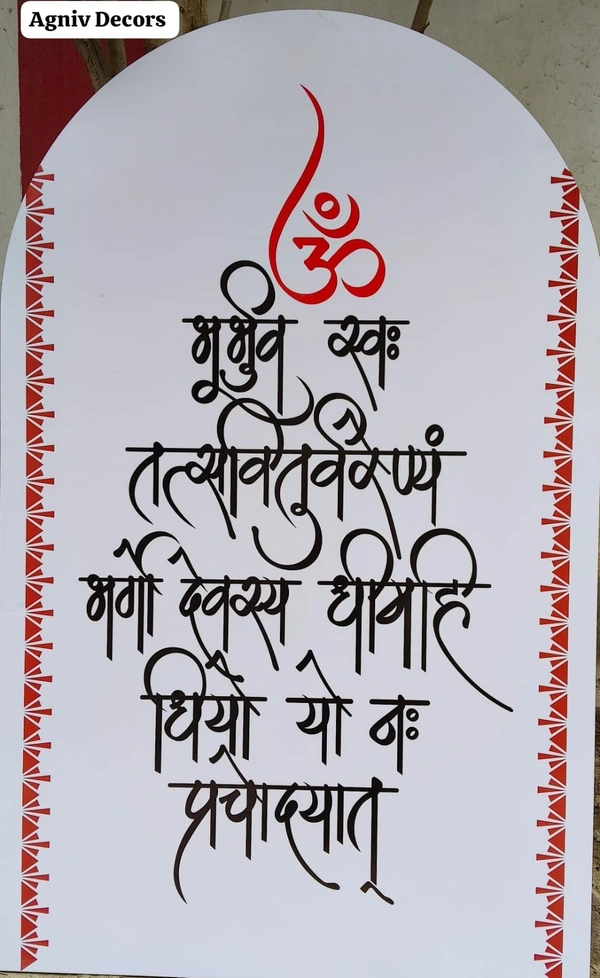 Agniv Decors
ॐ
भूर्भुव स्वः
तत्सवितुर्वरेण्यं
भर्गो देवस्य धीमहि
धियो यो नः
प्रचोदयात्